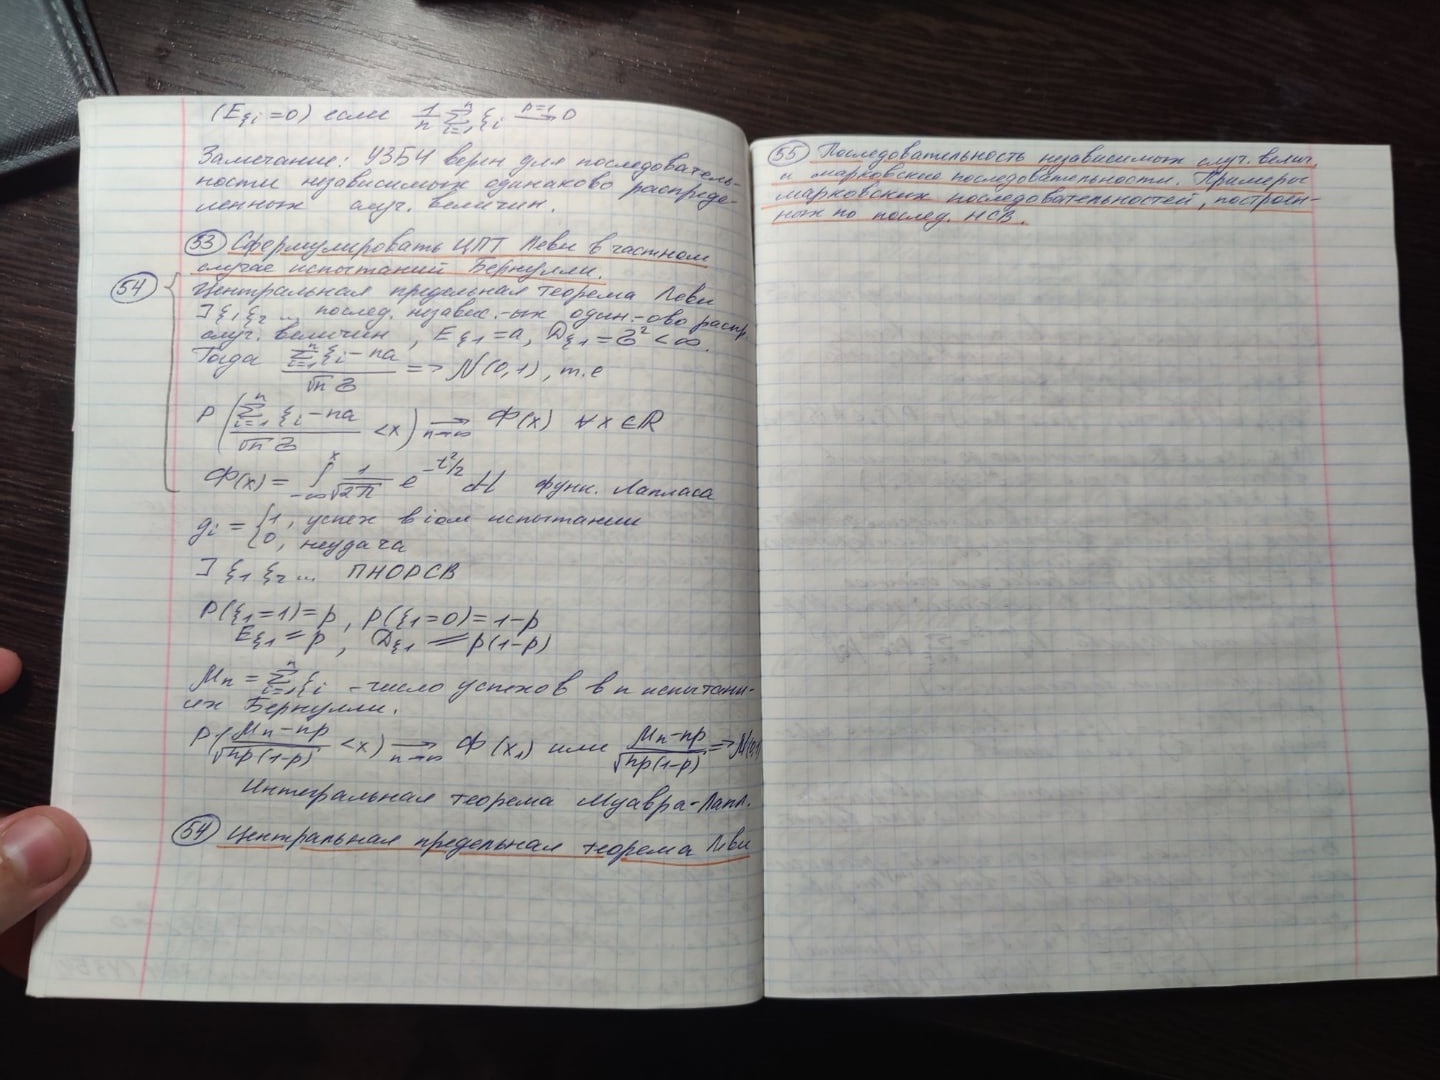 (Eξi = 0) если 1/n ∑_{i=1}^{n} ξi →^{p=1} 0
Замечание: УЗБЧ верен для последователь-
ности независимых одинаково распреде-
ленных случ. величин.
53 Сформулировать ЦПТ Леви в частном
случае испытаний Бернулли.
54 Центральная предельная теорема Леви
] ξ1 ξ2 ... послед. независ.-ых один.-ово распр.
случ. величин, Eξ1 = a, Dξ1 = σ² < ∞.
Тогда (∑_{i=1}^{n} ξi − na)/(√n σ) => N(0,1), т.е
P( (∑_{i=1}^{n} ξi − na)/(√n σ) < x ) →_{n→∞} Ф(x) ∀x ∈ R
Ф(x) = ∫_{−∞}^{x} 1/√2π e^{−t²/2} dt функ. Лапласа
gi = { 1, успех в iом испытании
0, неудача
] ξ1 ξ2 ... ПНОРСВ
P(ξ1 = 1) = p, P(ξ1 = 0) = 1 − p
Eξ1 = p, Dξ1 = p(1−p)
Mn = ∑_{i=1}^{n} ξi - число успехов в n испытани-
ях Бернулли.
P( (Mn − np)/√np(1−p) < x ) →_{n→∞} Ф(x1) или (Mn − np)/√np(1−p) => N(0,1
Интегральная теорема Муавра-Лапл.
54 Центральная предельная теорема Леви
55 Последовательность независимых случ. велич.
и марковские последовательности. Примеры
марковских последовательностей, построен-
ных по послед. НСВ.